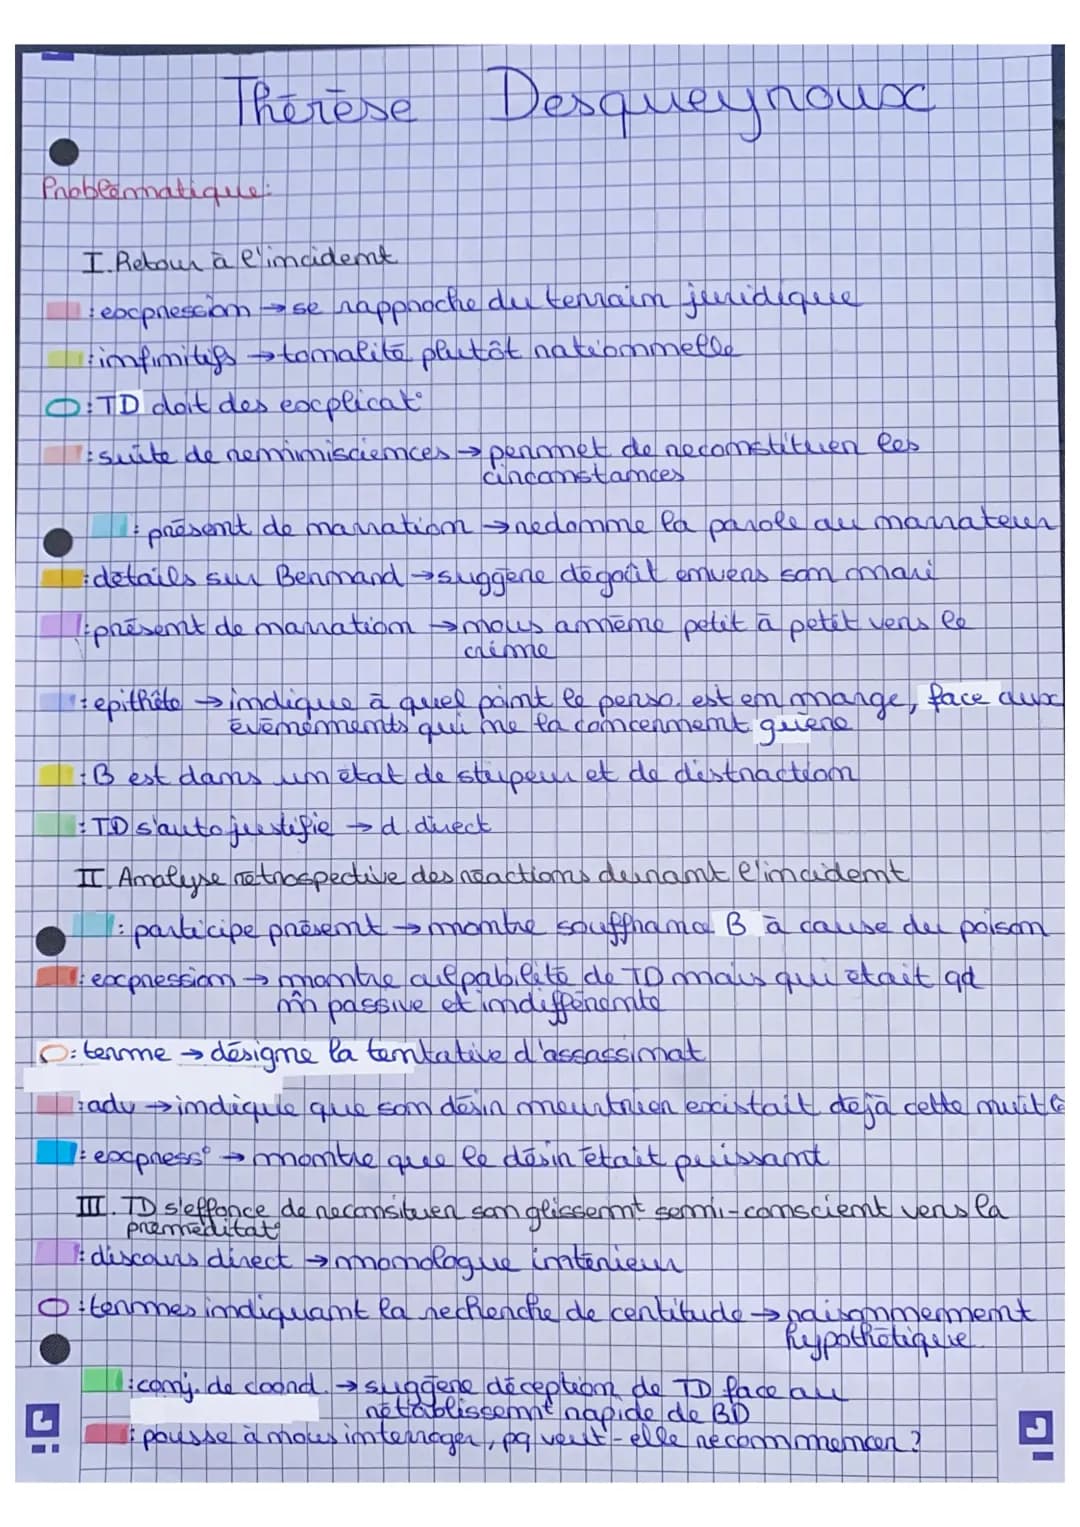 Thérèse Desqueyroux
Problématique:
I. Retour à l'incident
: expression → se rapproche du terrain juridique
: infinitifs → tonalité plutôt rationnelle
: TD doit des explicat°
: suite de réminisciences → permet de reconstituer les
circonstances
: présent de narration → redonne la parole au narrateur
: détails sur Bernard → suggère dégoût envers son mari
: présent de narration → nous amène petit à petit vers le
crime
: epithète → indique à quel point le perso. est en marge, face aux
évènements qui ne la concernent guère
: B est dans un état de stupeur et de distraction
: TD s'auto justifie → d. direct
II. Analyse rétrospective des réactions durant l'incident
: participe présent → montre souffrance B à cause du poison
: expression → montre culpabilité de TD mais qui était qd
mm passive et indifférente
: terme → désigne la tentative d'assassinat
: adv → indique que son désir meurtrier existait déjà cette nuit là
: express° → montre que le désir était puissant
III. TD s'efforce de reconsituer son glissemnt semi-conscient vers la
préméditat°
: discours direct → monologue intérieur
: termes indiquant la recherche de certitude → raisonnement
hypothétique
: conj. de coord. → suggère déception de TD face au
rétablissemnt rapide de BD
: pousse à nous interroger, pq veut-elle recommencer ?